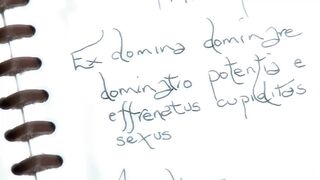 Ex domina dominare
dominatio potentia e
effrenatus cupiditas
sexus